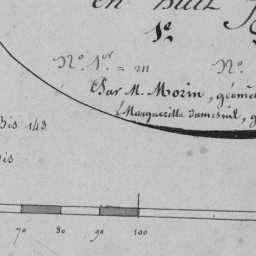 en huit
1e
No. 1er = m No.
Par M. Morin, géomèt
Marguerille Dumesnil, g
Bis 143
is
70 80 90 100